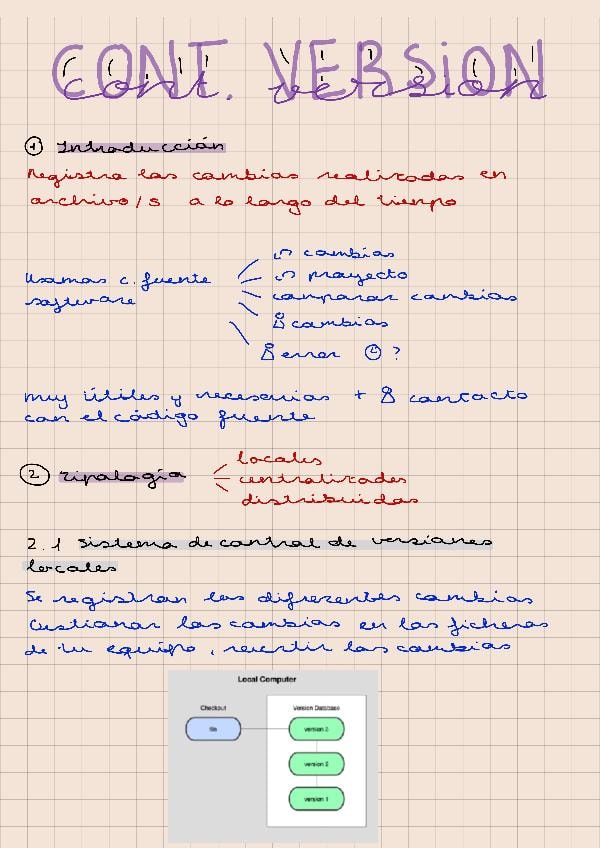 CONT. VERSION
cont. version
1 Introducción
Registra los cambios realizados en
archivo/s a lo largo del tiempo
Usamos c. fuente
software
↺ cambios
↺ proyecto
comparar cambios
cambios
error ?
muy útiles y necesarios + contacto
con el código fuente
2 Tipología
locales
centralizados
distribuidos
2.1 Sistema de control de versiones
locales
Se registran los diferentes cambios
Gestionar los cambios en los ficheros
de tu equipo, revertir los cambios
Local Computer
Checkout
Version Database
file
version 3
version 2
version 1